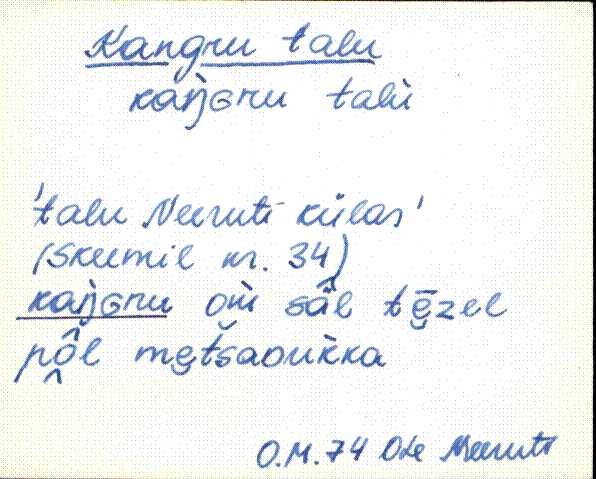 Kangru talu
kaŋ̀ɢru talù
'talu Neeruti külas'
(skeemil nr. 34)
kaŋ̀ɢru om̀ sȃl tē̮zel
pô̭l me̮t̆saᴅuk̀ka
O.M. 74 Ote Neeruti